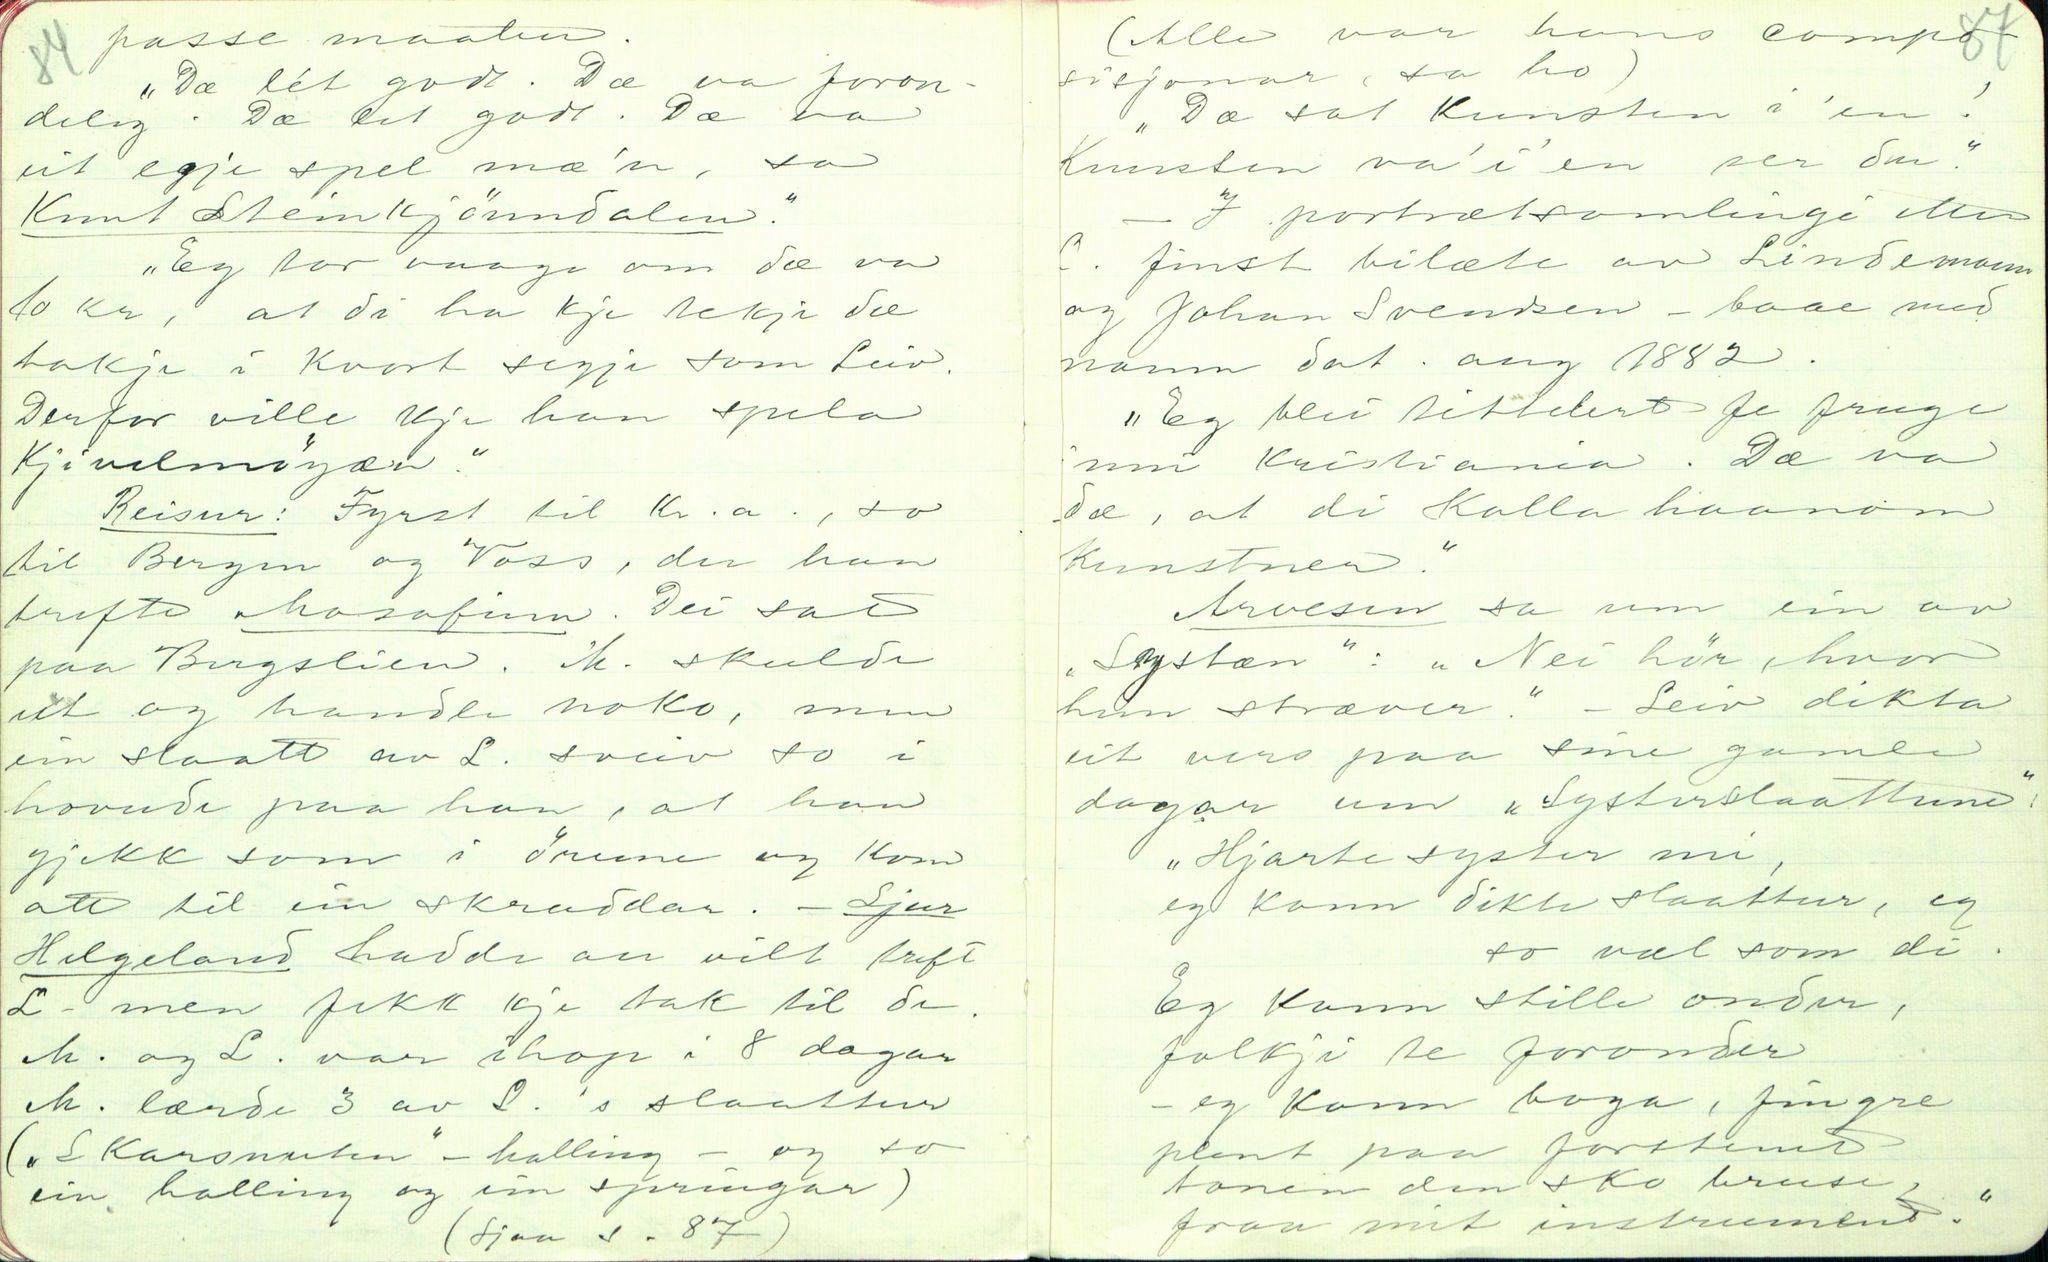 84
passe maaten.
"Dæ lét godt. Dæ va foron-
delig. Dæ let godt. Dæ va
eit egje spel mæ'n, sa
Knut Steinkjönndalen."
"Eg tor vaage om dæ va
10 kr, at di ha kje tekje dæ
takje i kvort segje som Leiv.
Derfor ville kje han spela
Kjivelmöyæn."
Reisur: Fyrst til Kr.a., so
til Bergen og Voss, der han
trefte Mosafinn. Dei sat
paa Bergslien. M. skulde
ut og handle noko, men
ein slaatt av L. sveiv so i
hovude paa han, at han
gjekk som i örunne og kom
att til ein skraddar. - Sjur
Helgeland hadde au vilt treft
L - men fekk kje tak til de.
M. og L. var ihop i 8 dagar
M. lærde 3 av L.'s slaattur
("Skarsnuten" - halling - og so
ein halling og ein springar)
(Sjaa s. 87)
87
(Alle var hans compo-
sisjonar, sa ho)
"Dæ sat kunsten i 'en!
Kunsten va' i 'en ser du."
- I portrætsamlingi etter
L. finst bilæte av Lindemann
og Johan Svendsen - baae med
namn dat. aug 1882.
"Eg blei tittelert fe fruge
inni Kristiania. Dæ va
dæ, at di kalla haanom
kunstner."
Arvesen sa um ein av
"Systæn": "Nei hör, hvor
hun stræver." - Leiv dikta
eit vers paa sine gamle
dagar um "Systerslaattune":
"Hjarte syster mi,
eg kann dikte slaattur, eg
so væl som di.
Eg kann stille onder,
folkji te foronder
- eg kann boga, fingre
plent paa forstenet
tonen den sko bruse,
fraa mit instrument."